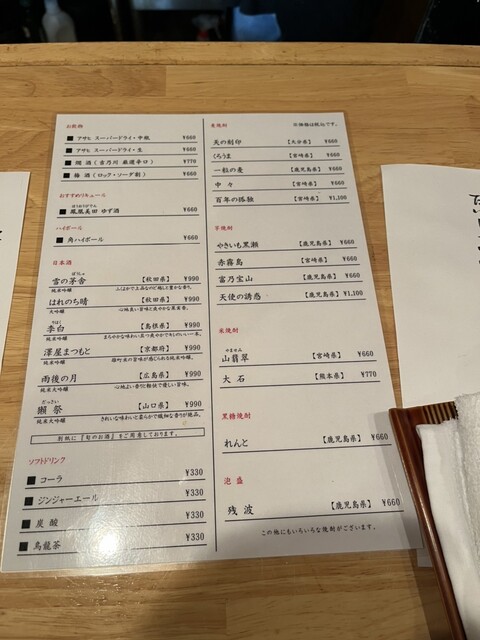 お飲物
■ アサヒ スーパードライ・中瓶 ¥660
■ アサヒ スーパードライ・生 ¥660
■ 燗 酒 (吉乃川 厳選辛口) ¥770
■ 梅 酒 (ロック・ソーダ割) ¥660
おすすめリキュール
ほうおうびでん
■ 鳳凰美田 ゆず酒 ¥660
ハイボール
■ 角ハイボール ¥660
日本酒
雪の茅舎 【秋田県】 ¥990
純米吟醸
はれのち晴 【秋田県】 ¥990
りはく
李白 【島根県】 ¥990
純米吟醸
澤屋まつもと 【京都府】 ¥990
純米吟醸
雨後の月 【広島県】 ¥990
純米吟醸
だっさい
獺祭 【山口県】 ¥990
純米大吟醸
別紙に『旬のお酒』をご用意しております。
ソフトドリンク
■ コーラ ¥330
■ ジンジャーエール ¥330
■ 炭酸 ¥330
■ 烏龍茶 ¥330
麦焼酎
※価格は税込です。
天の刻印 【大分県】 ¥660
くろうま 【宮崎県】 ¥660
一粒の麦 【鹿児島県】 ¥660
中々 【宮崎県】 ¥660
百年の孤独 【宮崎県】 ¥1,100
芋焼酎
やきいも黒瀬 【鹿児島県】 ¥660
赤霧島 【宮崎県】 ¥660
富乃宝山 【鹿児島県】 ¥660
天使の誘惑 【鹿児島県】 ¥1,100
米焼酎
やませみ
山翡翠 【宮崎県】 ¥660
大石 【熊本県】 ¥770
黒糖焼酎
れんと 【鹿児島県】 ¥660
泡盛
残波 【鹿児島県】 ¥660
この他にもいろいろな焼酎がございます。